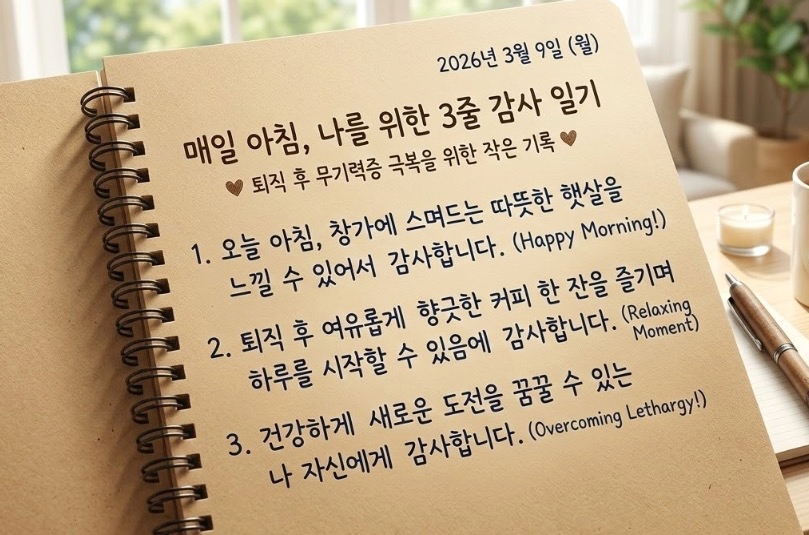 2026년 3월 9일 (월)
매일 아침, 나를 위한 3줄 감사 일기
퇴직 후 무기력증 극복을 위한 작은 기록
1. 오늘 아침, 창가에 스며드는 따뜻한 햇살을
느낄 수 있어서 감사합니다. (Happy Morning!)
2. 퇴직 후 여유롭게 향긋한 커피 한 잔을 즐기며
하루를 시작할 수 있음에 감사합니다. (Relaxing
Moment)
3. 건강하게 새로운 도전을 꿈꿀 수 있는
나 자신에게 감사합니다. (Overcoming Lethargy!)